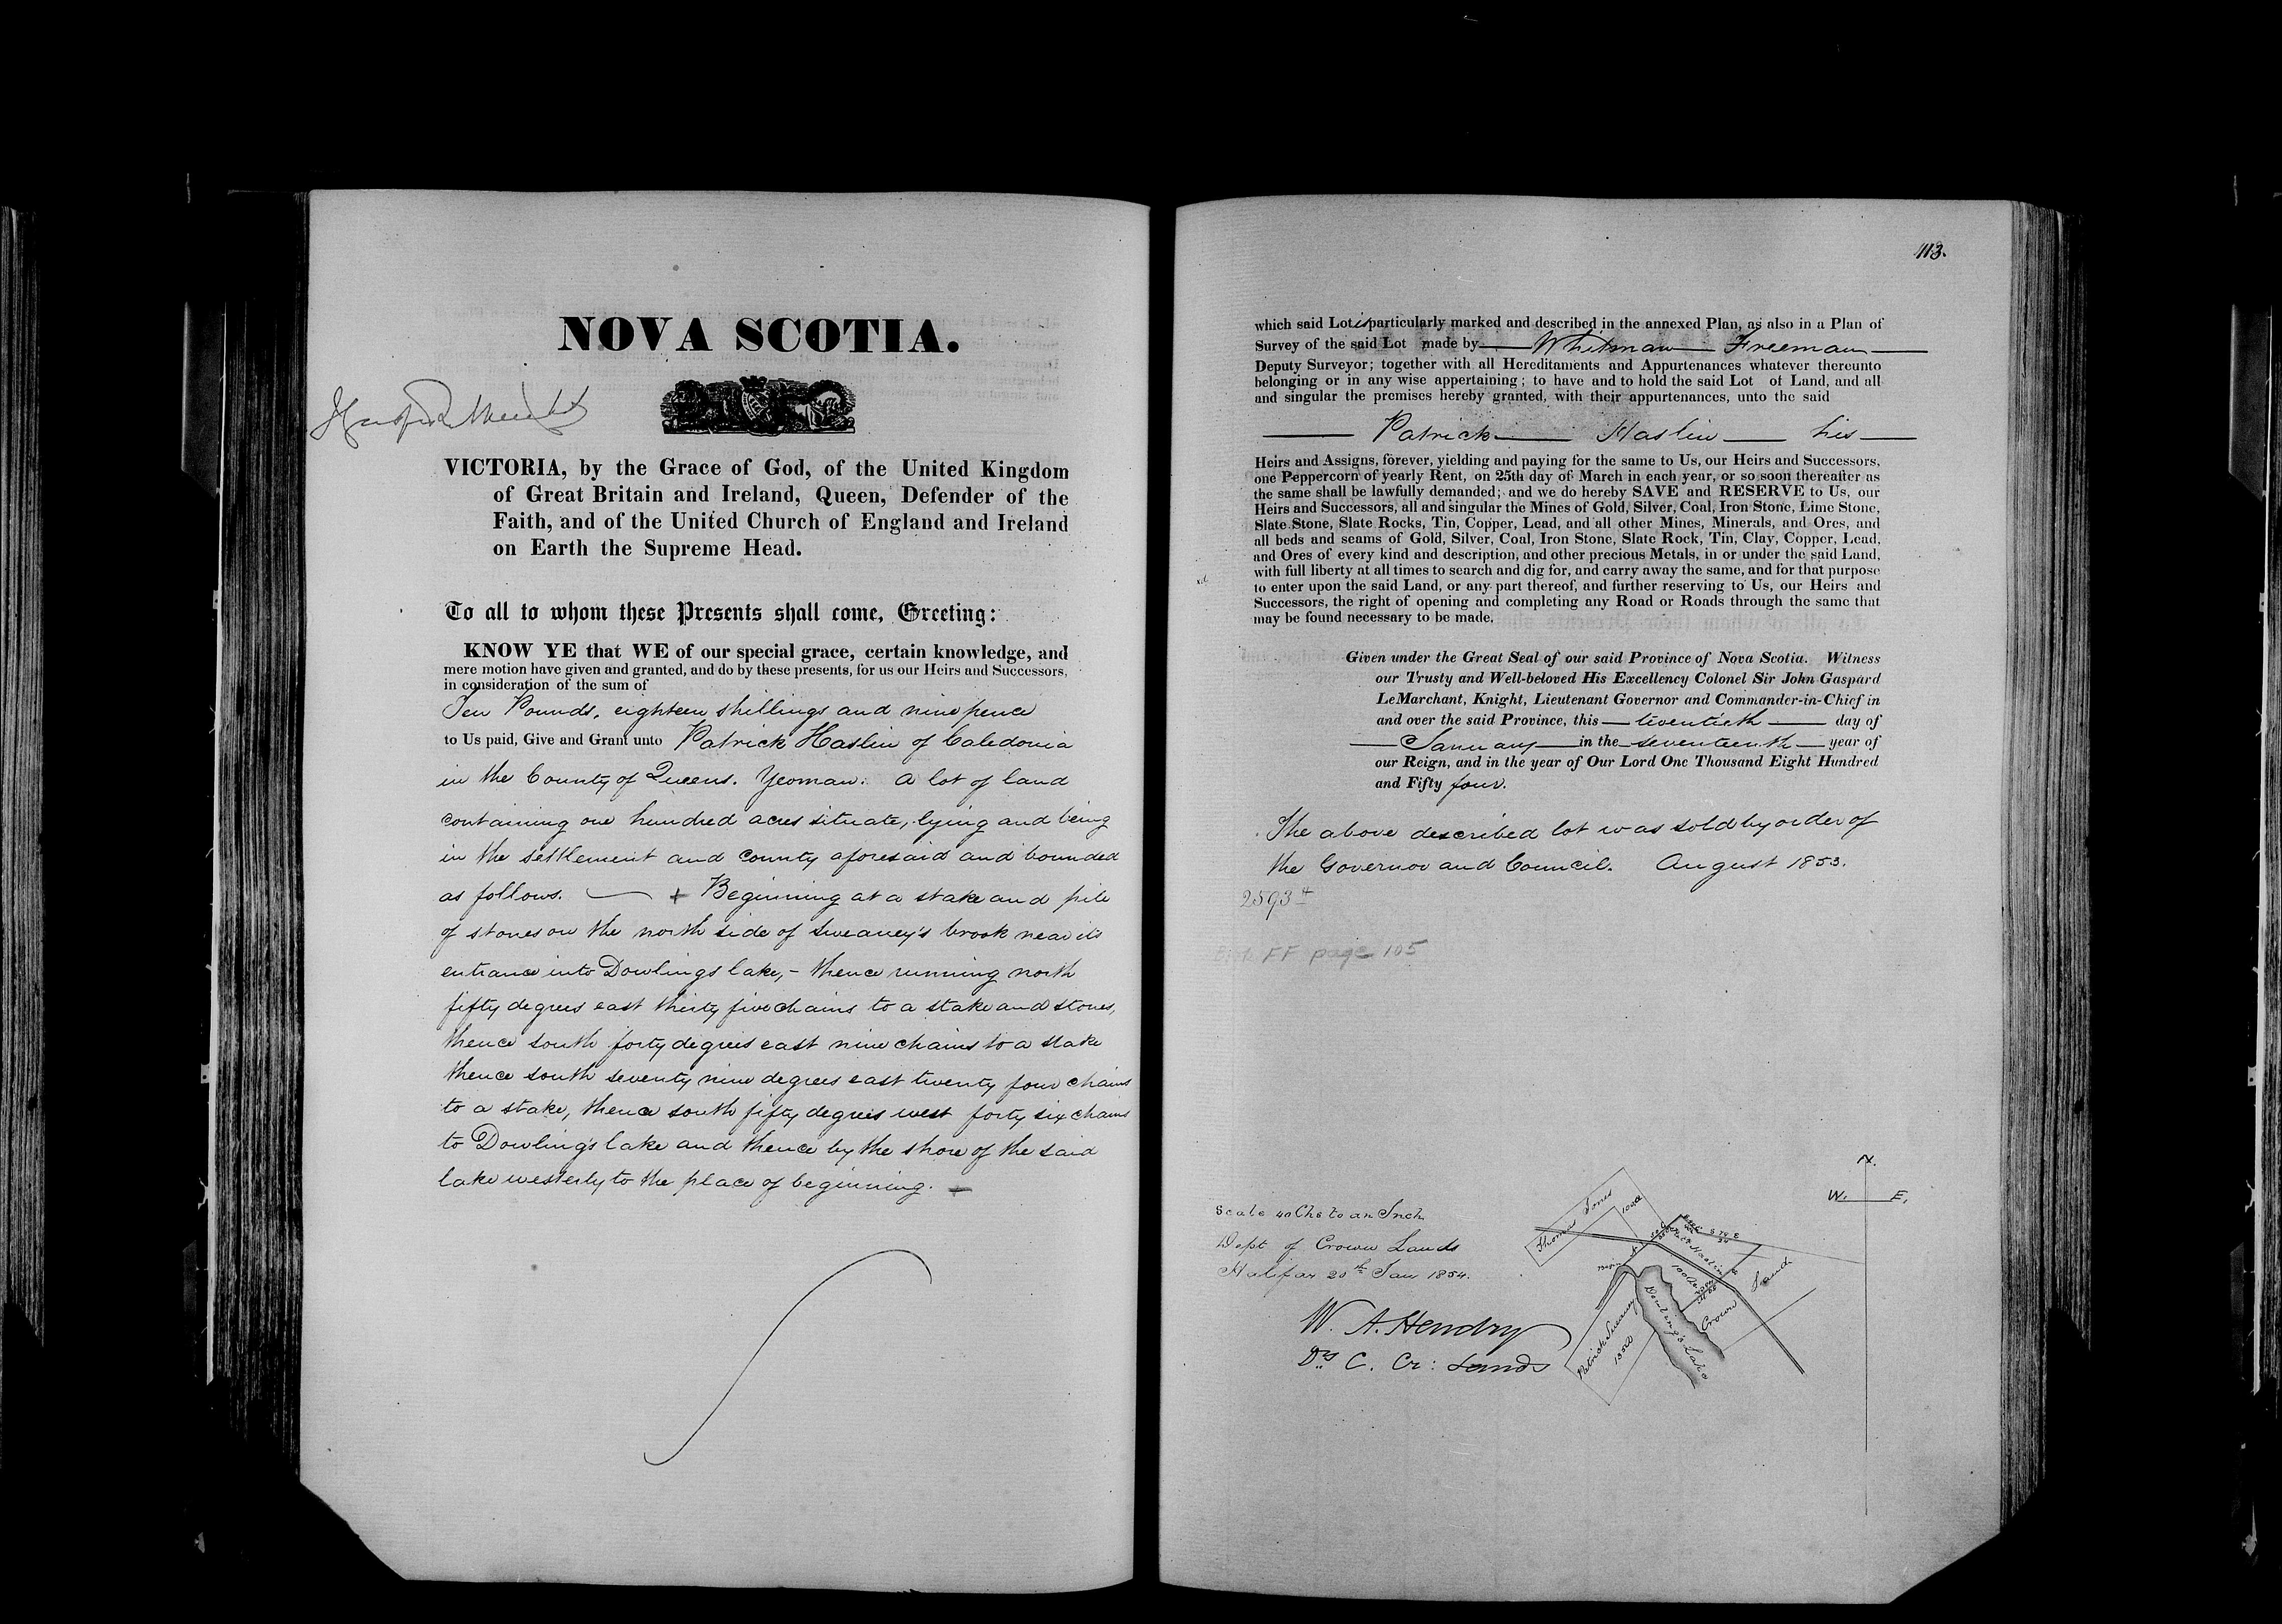 NOVA SCOTIA.
VICTORIA, by the Grace of God, of the United Kingdom
of Great Britain and Ireland, Queen, Defender of the
Faith, and of the United Church of England and Ireland
on Earth the Supreme Head.
To all to whom these Presents shall come, Greeting:
KNOW YE that WE of our special grace, certain knowledge, and
mere motion have given and granted, and do by these presents, for us our Heirs and Successors,
in consideration of the sum of
Ten Pounds, eighteen shillings and nine pence
to Us paid, Give and Grant unto Patrick Haslin of Caledonia
in the County of Queens. Yeoman: A lot of land
containing one hundred acres situate, lying and being
in the settlement and county aforesaid and bounded
as follows. — + Beginning at a stake and pile
of stones on the north side of Sweaney's brook near its
entrance into Dowlings lake, - thence running north
fifty degrees east thirty five chains to a stake and stones,
thence south forty degrees east nine chains to a stake
thence south seventy nine degrees east twenty four chains
to a stake, thence south fifty degrees west forty six chains
to Dowling's lake and thence by the shore of the said
lake westerly to the place of beginning. —
113.
which said Lot is particularly marked and described in the annexed Plan, as also in a Plan of
Survey of the said Lot made by — Whitman — Freeman —
Deputy Surveyor; together with all Hereditaments and Appurtenances whatever thereunto
belonging or in any wise appertaining; to have and to hold the said Lot of Land, and all
and singular the premises hereby granted, with their appurtenances, unto the said
— Patrick — Haslin — his —
Heirs and Assigns, forever, yielding and paying for the same to Us, our Heirs and Successors,
one Peppercorn of yearly Rent, on 25th day of March in each year, or so soon thereafter as
the same shall be lawfully demanded; and we do hereby SAVE and RESERVE to Us, our
Heirs and Successors, all and singular the Mines of Gold, Silver, Coal, Iron Stone, Lime Stone,
Slate Stone, Slate Rocks, Tin, Copper, Lead, and all other Mines, Minerals, and Ores, and
all beds and seams of Gold, Silver, Coal, Iron Stone, Slate Rock, Tin, Clay, Copper, Lead,
and Ores of every kind and description, and other precious Metals, in or under the said Land,
with full liberty at all times to search and dig for, and carry away the same, and for that purpose
to enter upon the said Land, or any part thereof, and further reserving to Us, our Heirs and
Successors, the right of opening and completing any Road or Roads through the same that
may be found necessary to be made.
Given under the Great Seal of our said Province of Nova Scotia. Witness
our Trusty and Well-beloved His Excellency Colonel Sir John Gaspard
LeMarchant, Knight, Lieutenant Governor and Commander-in-Chief in
and over the said Province, this — twentieth — day of
— January — in the — seventeenth — year of
our Reign, and in the year of Our Lord One Thousand Eight Hundred
and Fifty four.
The above described lot was sold by order of
the Governor and Council. August 1853.
2593
FF page 105
N.
W. E.
Scale 40 Chs to an Inch
Dept of Crown Lands
Halifax 20th Jan 1854.
W. A. Hendry
C. Cr: Lands
Thomas Jones
100A
S 79 E
100A
Crown Land
Dowling's Lake
Patrick Sweaney